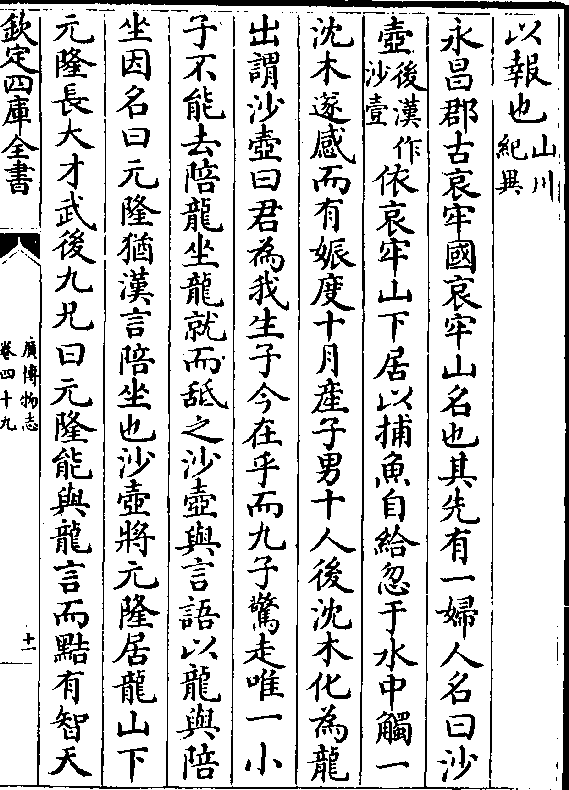 以報也山川
紀異
永昌郡古哀牢國哀牢山名也其先有一婦人名曰沙
壺後漢作
沙壹依哀牢山下居以捕魚自給忽于水中觸一
沈木遂感而有娠度十月產子男十人後沈木化為龍
出謂沙壺曰君為我生子今在乎而九子驚走唯一小
子不能去陪龍坐龍就而舐之沙壺與言語以龍與陪
坐因名曰元隆猶漢言陪坐也沙壺將元隆居龍山下
元隆長大才武後九兄曰元隆能與龍言而黠有智天
欽定四庫全書
廣博物志
卷四十九
十一